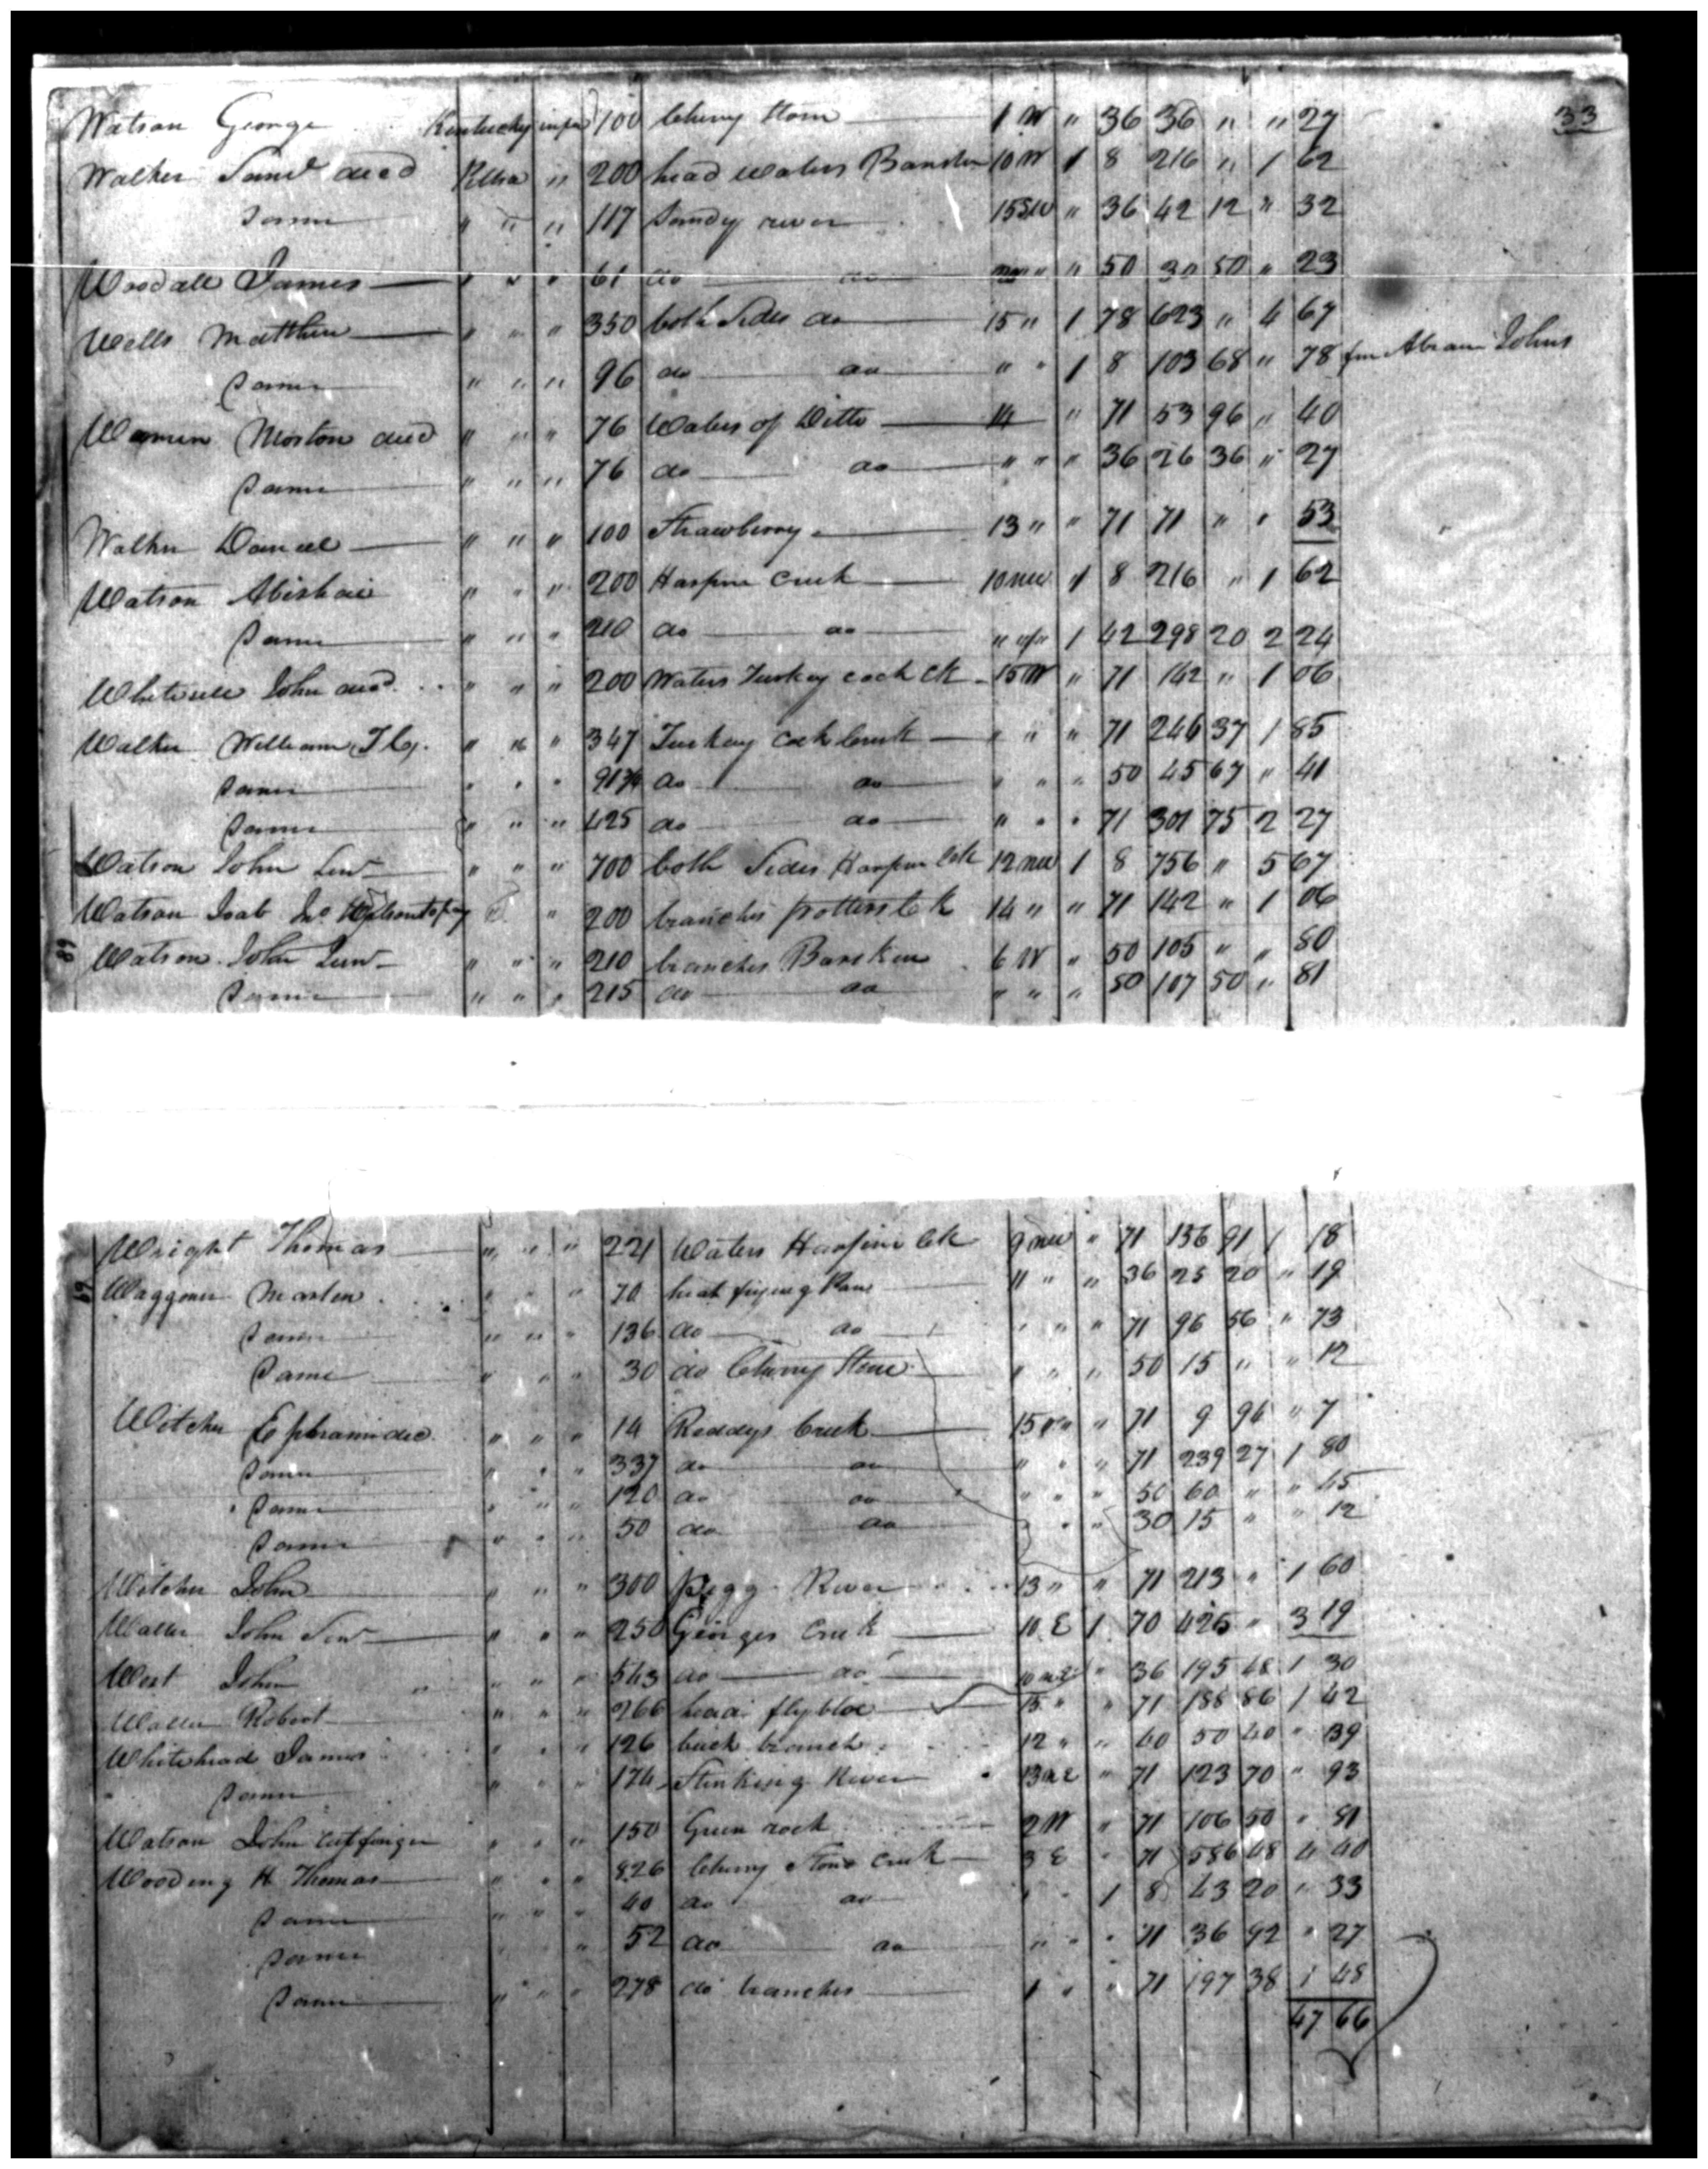 33
Watson George Kentucky in fee 100 Cherry Stone 1 W " 36 36 " " 27
Walker Saml decd Pittsa " 200 head waters Banister 10 W 1 8 216 " 1 62
Same " " " 117 Sandy river 15 SW " 36 42 12 " 32
Woodall James " " " 61 do do " " 50 30 50 " 23
Wells Matthew " " " 350 both Sides do 15 " 1 78 623 " 4 67
Same " " " 96 do do " " 1 8 103 68 " 78 fm Abram Johns
Morton decd " " " 76 Waters of Ditto 14 " 71 53 96 " 40
Same " " " 76 do do " " " 36 26 36 " 27
Walker Daniel " " " 100 Strawberry 13 " " 71 71 " " 53
Watson Abishai " " " 200 Harpin Creek 10 NW 1 8 216 " 1 62
Same " " " 210 do do " " 1 42 298 20 2 24
John decd " " " 200 Waters Turkey cock Ck 15 W " 71 142 " 1 06
Walker William " " " 347 Turkey Cock Creek " " " 71 246 37 1 85
Same " " " 91 3/4 do do " " " 50 45 67 " 41
Same " " " 425 do do " " " 71 301 75 2 27
Watson John Senr " " " 700 both Sides Harpin Crk 12 NW 1 8 756 " 5 67
Watson Jno Watson to pay " 200 branches Potters Ck 14 " " 71 142 " 1 06
Watson John Junr " " " 210 branches Banister 6 W " 50 105 " " 80
Same " " " 215 do do " " " 50 107 50 " 81
Wright Thomas " " " 221 Waters Harpin Crk 9 NW " 71 156 91 1 18
Waggoner Marten " " " 70 frying Pan 11 " " 36 25 20 " 19
Same " " " 136 do do " " " 71 96 56 " 73
Same " " " 30 do Cherry Stone " " " 50 15 " " 12
Witcher Ephraim dec " " " 14 Reddys Creek 15 " " 71 9 94 " 7
Same " " " 337 do do " " " 71 239 27 1 80
Same " " " 120 do do " " " 50 60 " " 45
Same " " " 50 do do " " " 30 15 " " 12
Witcher John " " " 300 Pigg River 13 " " 71 213 " 1 60
Waller John Senr " " " 250 Georges Creek 10 E 1 70 425 " 3 19
West John " " " 543 do do 10 NE " 36 195 48 1 30
Waller Robert " " " 266 head fly blow 15 " " 71 188 86 1 42
Whitehead James " " " 126 buck branch 12 " " 40 50 40 " 39
Same " " " 174 Stinking River 13 NE " 71 123 70 " 93
Watson John cutfinger " " " 150 Green rock 2 W " 71 106 50 " 81
Wooding H Thomas " " " 826 Cherry Stone Creek 3 E " 71 586 48 4 40
Same " " " 40 do do " " 1 8 43 20 " 33
Same " " " 52 do do " " " 71 36 92 " 27
Same " " " 278 do branches 1 " " 71 197 38 1 48
47 66